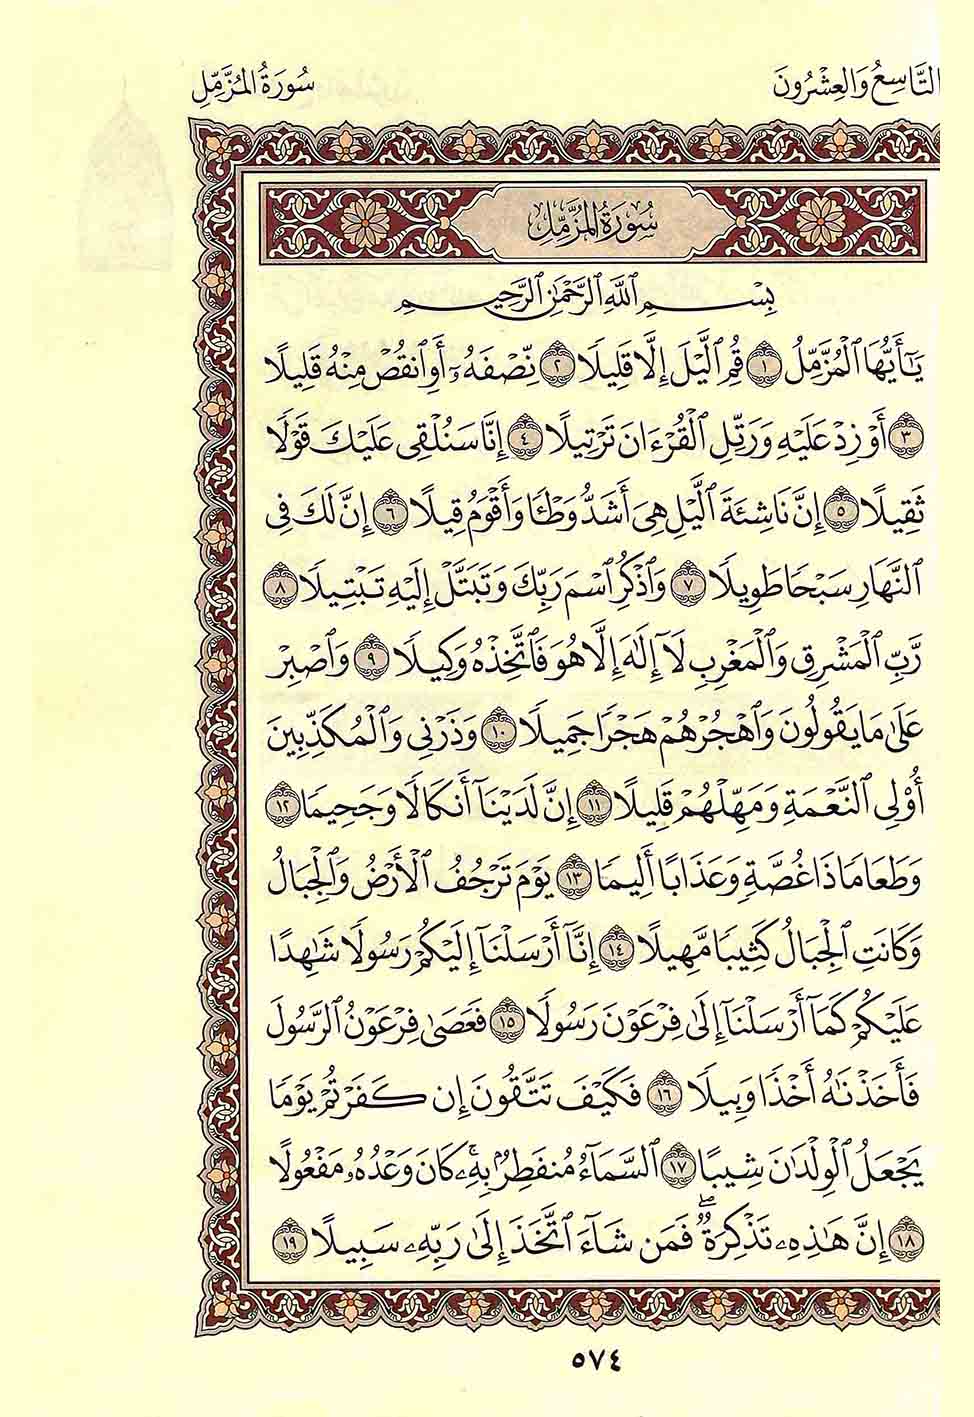 التَّاسِعُ وَالعِشْرُونَ
سُورَةُ المُزَّمِّل
سُورَةُ المُزَّمِّل
بِسْمِ ٱللَّهِ ٱلرَّحْمَٰنِ ٱلرَّحِيمِ
يَٰٓأَيُّهَا ٱلْمُزَّمِّلُ ١ قُمِ ٱلَّيْلَ إِلَّا قَلِيلًا ٢ نِّصْفَهُۥٓ أَوِ ٱنقُصْ مِنْهُ قَلِيلًا
٣ أَوْ زِدْ عَلَيْهِ وَرَتِّلِ ٱلْقُرْءَانَ تَرْتِيلًا ٤ إِنَّا سَنُلْقِى عَلَيْكَ قَوْلًا
ثَقِيلًا ٥ إِنَّ نَاشِئَةَ ٱلَّيْلِ هِىَ أَشَدُّ وَطْـًٔا وَأَقْوَمُ قِيلًا ٦ إِنَّ لَكَ فِى
ٱلنَّهَارِ سَبْحًا طَوِيلًا ٧ وَٱذْكُرِ ٱسْمَ رَبِّكَ وَتَبَتَّلْ إِلَيْهِ تَبْتِيلًا ٨
رَّبُّ ٱلْمَشْرِقِ وَٱلْمَغْرِبِ لَآ إِلَٰهَ إِلَّا هُوَ فَٱتَّخِذْهُ وَكِيلًا ٩ وَٱصْبِرْ
عَلَىٰ مَا يَقُولُونَ وَٱهْجُرْهُمْ هَجْرًا جَمِيلًا ١٠ وَذَرْنِى وَٱلْمُكَذِّبِينَ
أُو۟لِى ٱلنَّعْمَةِ وَمَهِّلْهُمْ قَلِيلًا ١١ إِنَّ لَدَيْنَآ أَنكَالًا وَجَحِيمًا ١٢
وَطَعَامًا ذَا غُصَّةٍ وَعَذَابًا أَلِيمًا ١٣ يَوْمَ تَرْجُفُ ٱلْأَرْضُ وَٱلْجِبَالُ
وَكَانَتِ ٱلْجِبَالُ كَثِيبًا مَّهِيلًا ١٤ إِنَّآ أَرْسَلْنَآ إِلَيْكُمْ رَسُولًا شَٰهِدًا
عَلَيْكُمْ كَمَآ أَرْسَلْنَآ إِلَىٰ فِرْعَوْنَ رَسُولًا ١٥ فَعَصَىٰ فِرْعَوْنُ ٱلرَّسُولَ
فَأَخَذْنَٰهُ أَخْذًا وَبِيلًا ١٦ فَكَيْفَ تَتَّقُونَ إِن كَفَرْتُمْ يَوْمًا
يَجْعَلُ ٱلْوِلْدَٰنَ شِيبًا ١٧ ٱلسَّمَآءُ مُنفَطِرٌۢ بِهِۦ ۚ كَانَ وَعْدُهُۥ مَفْعُولًا
١٨ إِنَّ هَٰذِهِۦ تَذْكِرَةٌ ۖ فَمَن شَآءَ ٱتَّخَذَ إِلَىٰ رَبِّهِۦ سَبِيلًا ١٩
٥٧٤